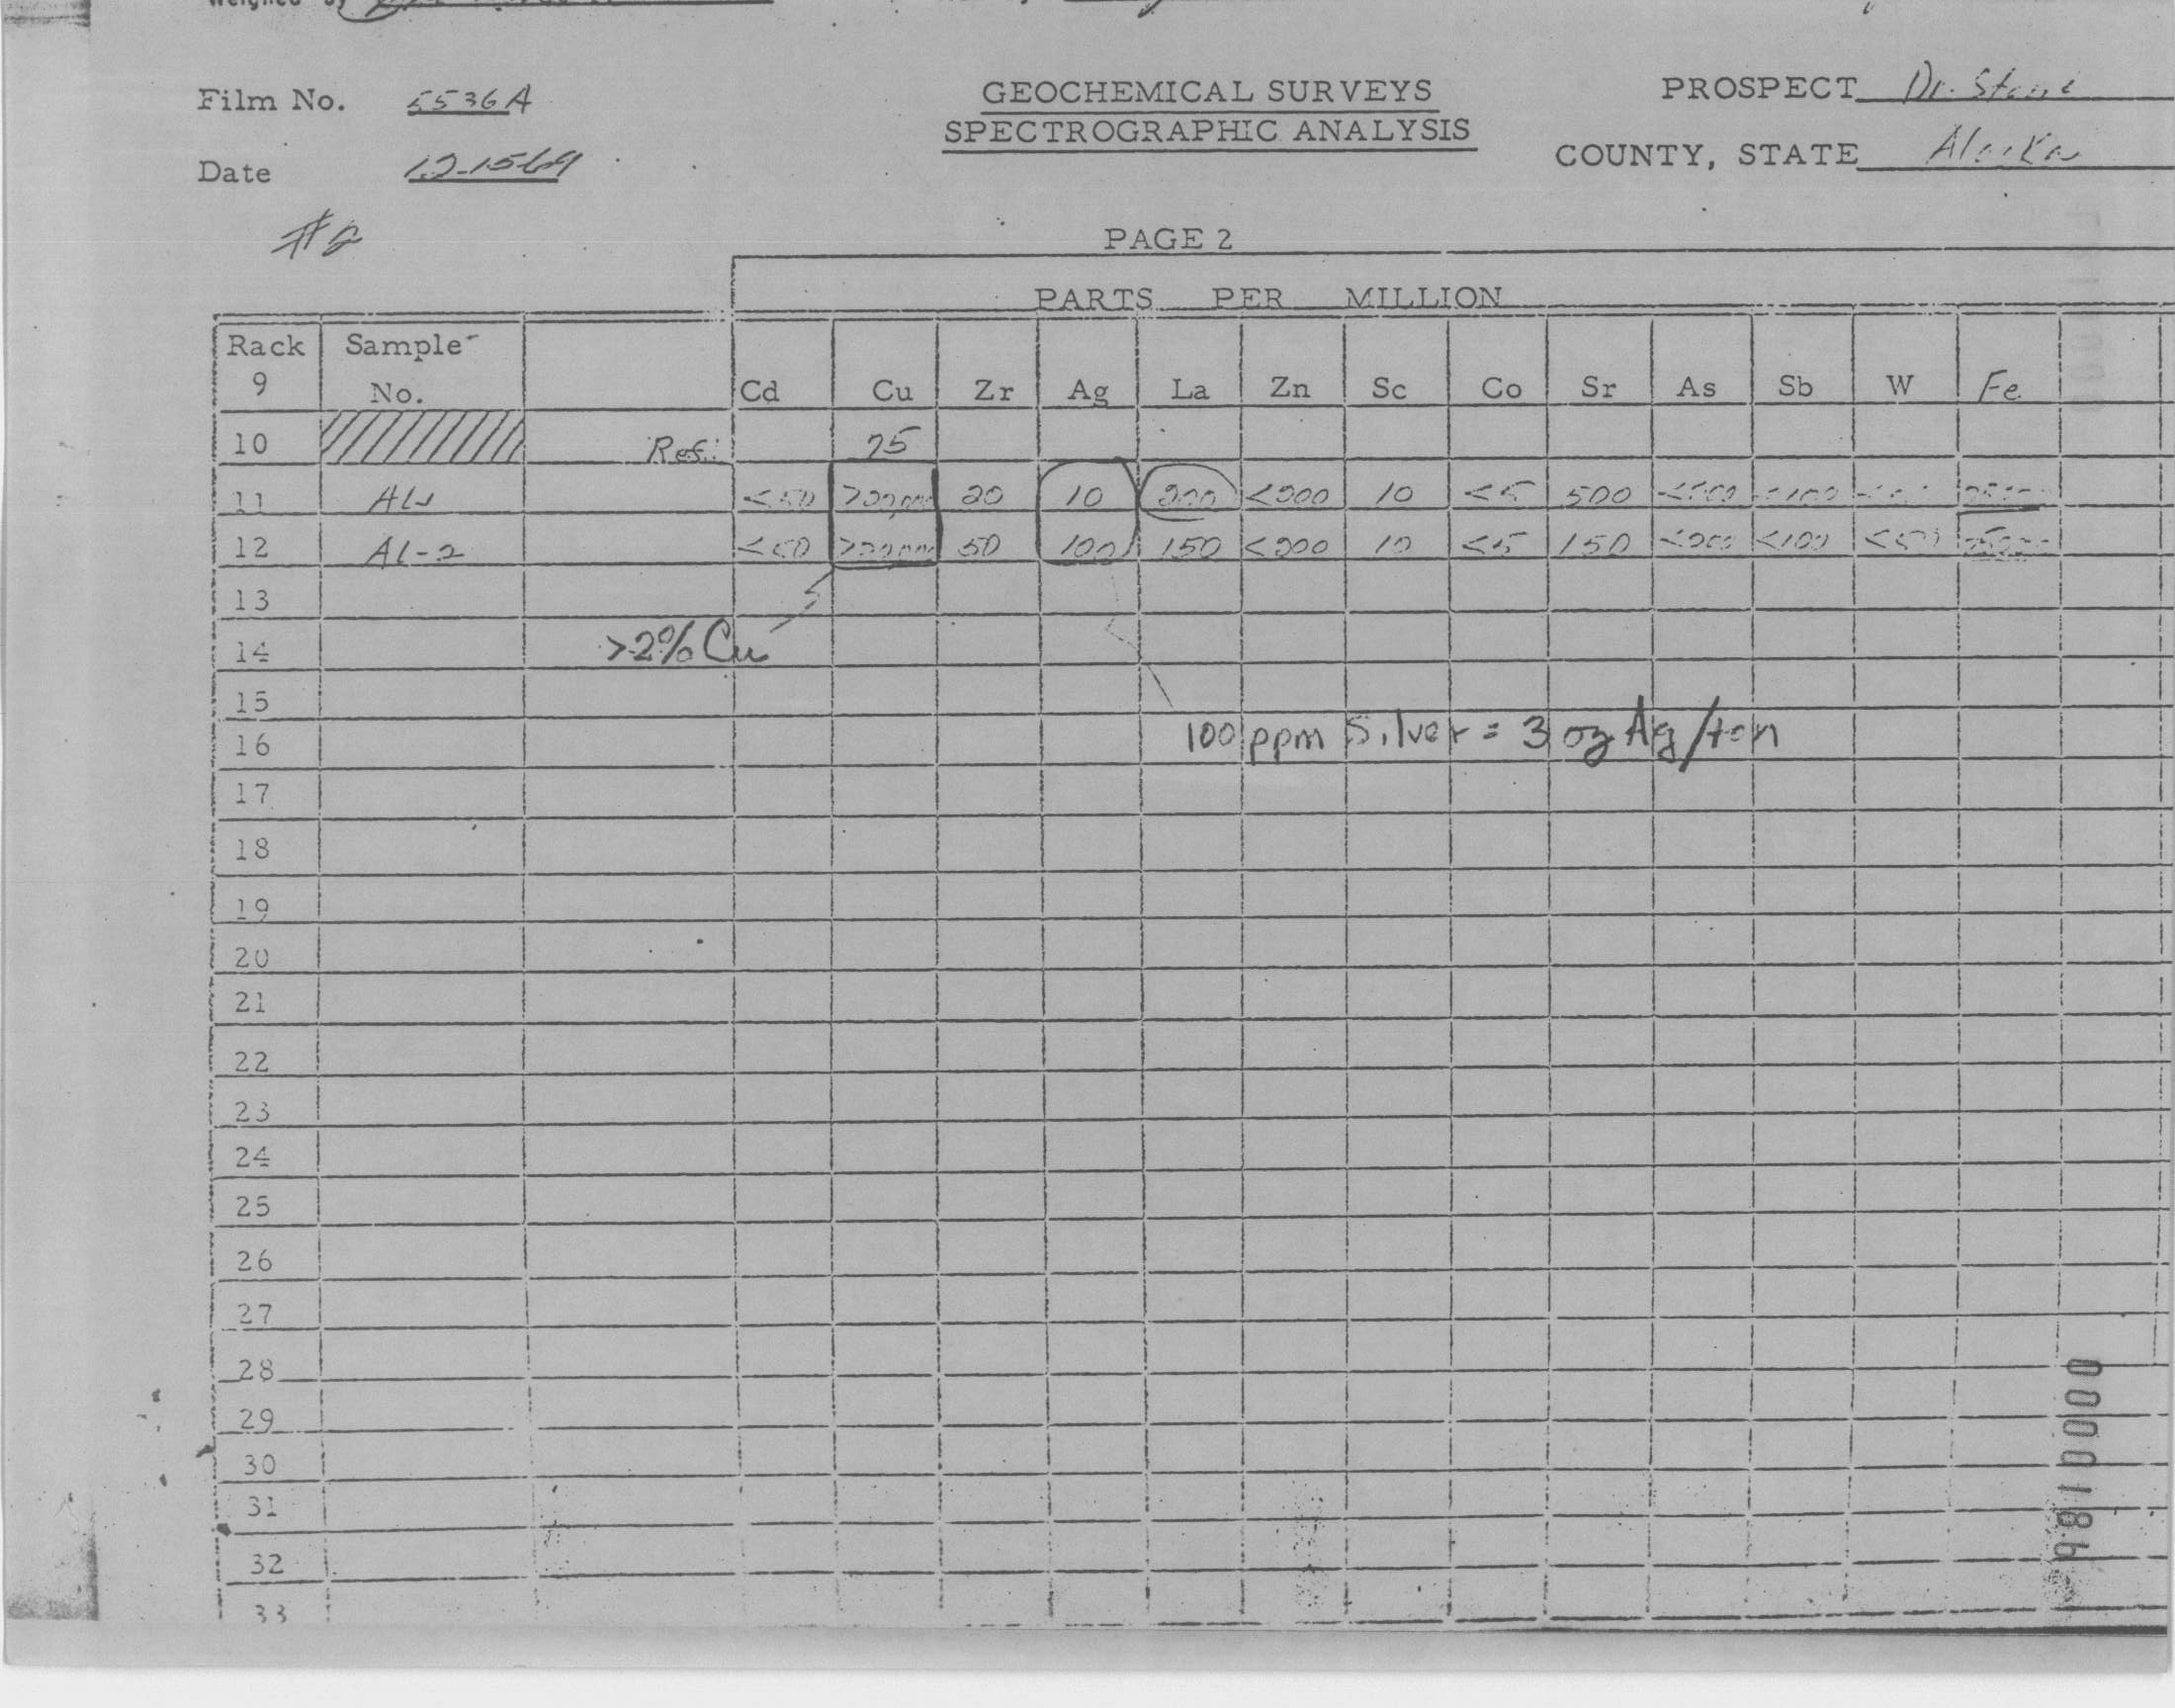 Weighed by
Film No. 5536A
GEOCHEMICAL SURVEYS
SPECTROGRAPHIC ANALYSIS
PROSPECT Dr. Stone
COUNTY, STATE Alaska
Date 12-15-69
PAGE 2
PARTS PER MILLION
Rack 9 Sample No. Cd Cu Zr Ag La Zn Sc Co Sr As Sb W Fe
10 Ref: 75
11 <50 20 10 200 <200 10 <5 500
12 AL-2 <50 50 100 150 <200 10 <5 150 <200 <100 <50
13
>2% Cu
14
15
100 ppm Silver = 3 oz Ag/ton
16
17
18
19
20
21
22
23
24
25
26
27
28
29
30
31
32
33